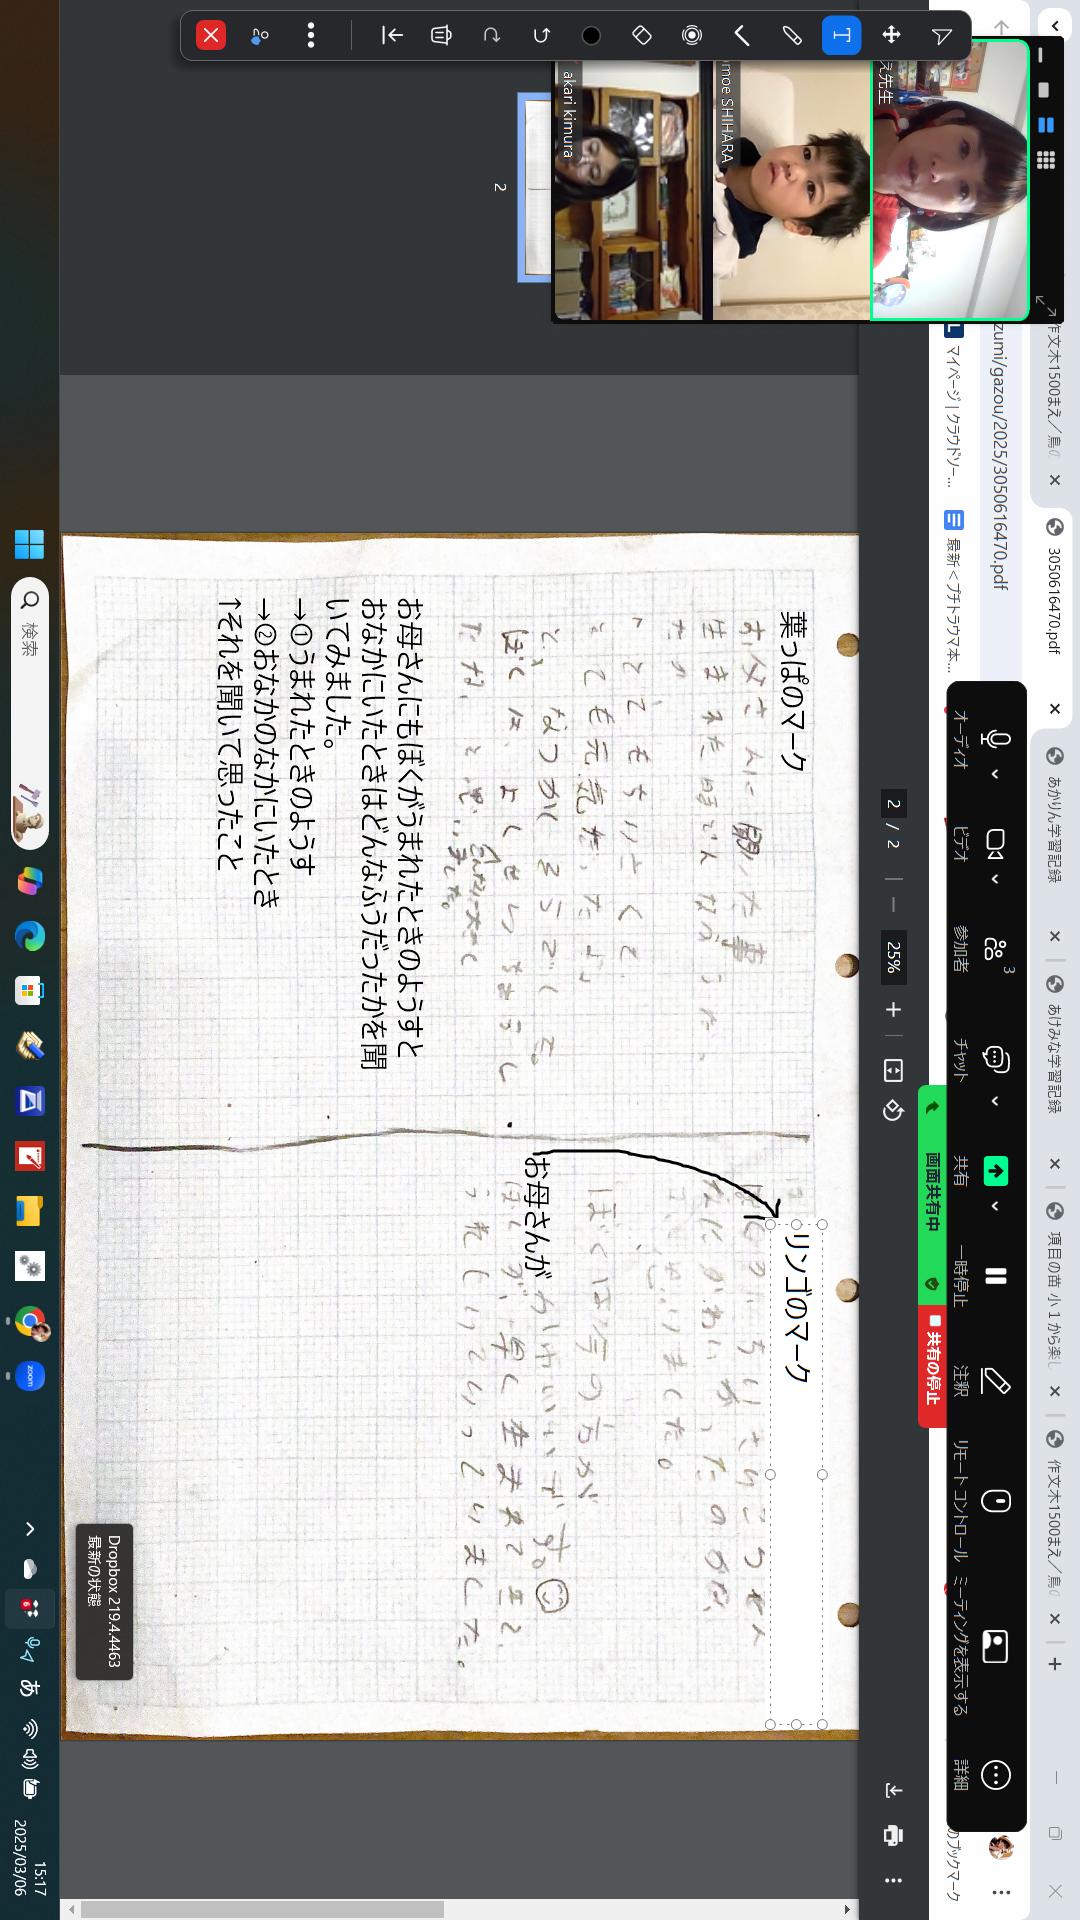 作文木1500まえ／鳥の
3050616470.pdf
あかりん学習記録
あけみな学習記録
項目の苗 小１から楽し
作文木1500まえ／鳥の
zumi/gazou/2025/3050616470.pdf
マイページ | クラウドソー...
最新＜プチトラウマ本...
のブックマーク
え先生
moe SHIHARA
akari kimura
オーディオ
ビデオ
参加者
3
チャット
共有
一時停止
注釈
リモートコントロール
ミーティングを表示する
詳細
画面共有中
共有の停止
2 / 2
25%
2
葉っぱのマーク
お父さんに聞いた事
生まれた時でんな
とてもちいさくて、
とても元気だったよ
と、なつかしそうでした。
ぼくは、よくせいちょうし
たな、と思いました。
お母さんにもぼくがうまれたときのようすと
おなかにいたときはどんなふうだったかを聞
いてみました。
→①うまれたときのようす
→②おなかのなかにいたとき
↑それを聞いて思ったこと
リンゴのマーク
思いました。
ぼくは今の方が
かわいいです。
お母さんが
ぼくが、早く生まれてきて、
うれしいといっていました。
検索
Dropbox 219.4.4463
最新の状態
あ
15:17
2025/03/06